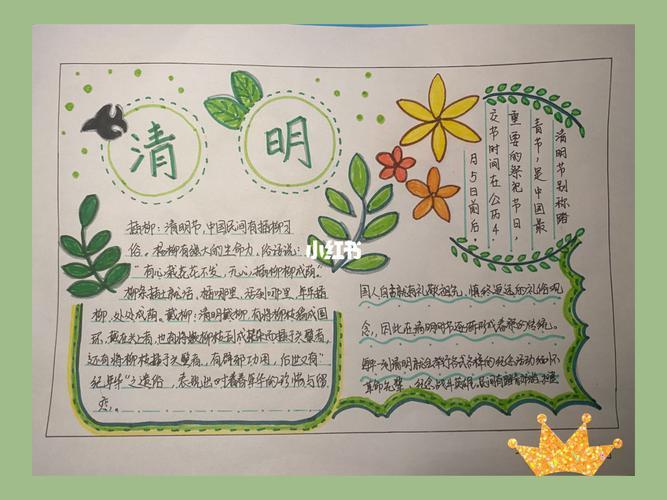 清
明
清明节别称踏
青节，是中国最
重要的祭祀节日，
交节时间在公历4
月5日前后
插柳：清明节，中国民间有插柳习
俗。杨柳有强大的生命力，俗话说：
“有心栽花花不发，无心插柳柳成荫。”
柳条插土就活，插哪里，活到哪里，年年插
柳，处处成荫。戴柳：清明戴柳，有将柳枝编成圆
环，戴在头上者，也有将嫩柳枝
还有将柳枝插于头髻者，有辟邪功用，后世又有“
纪年华”之遗俗，表现出对着青年华的珍惜与留
恋。
小红书
国人自古就有礼敬祖先，慎终追远的礼俗观
念，因此在清明节逐渐形成
每年一到清明就会举行各式各样的纪念活动
革命先辈，纪念战斗英雄，民间有